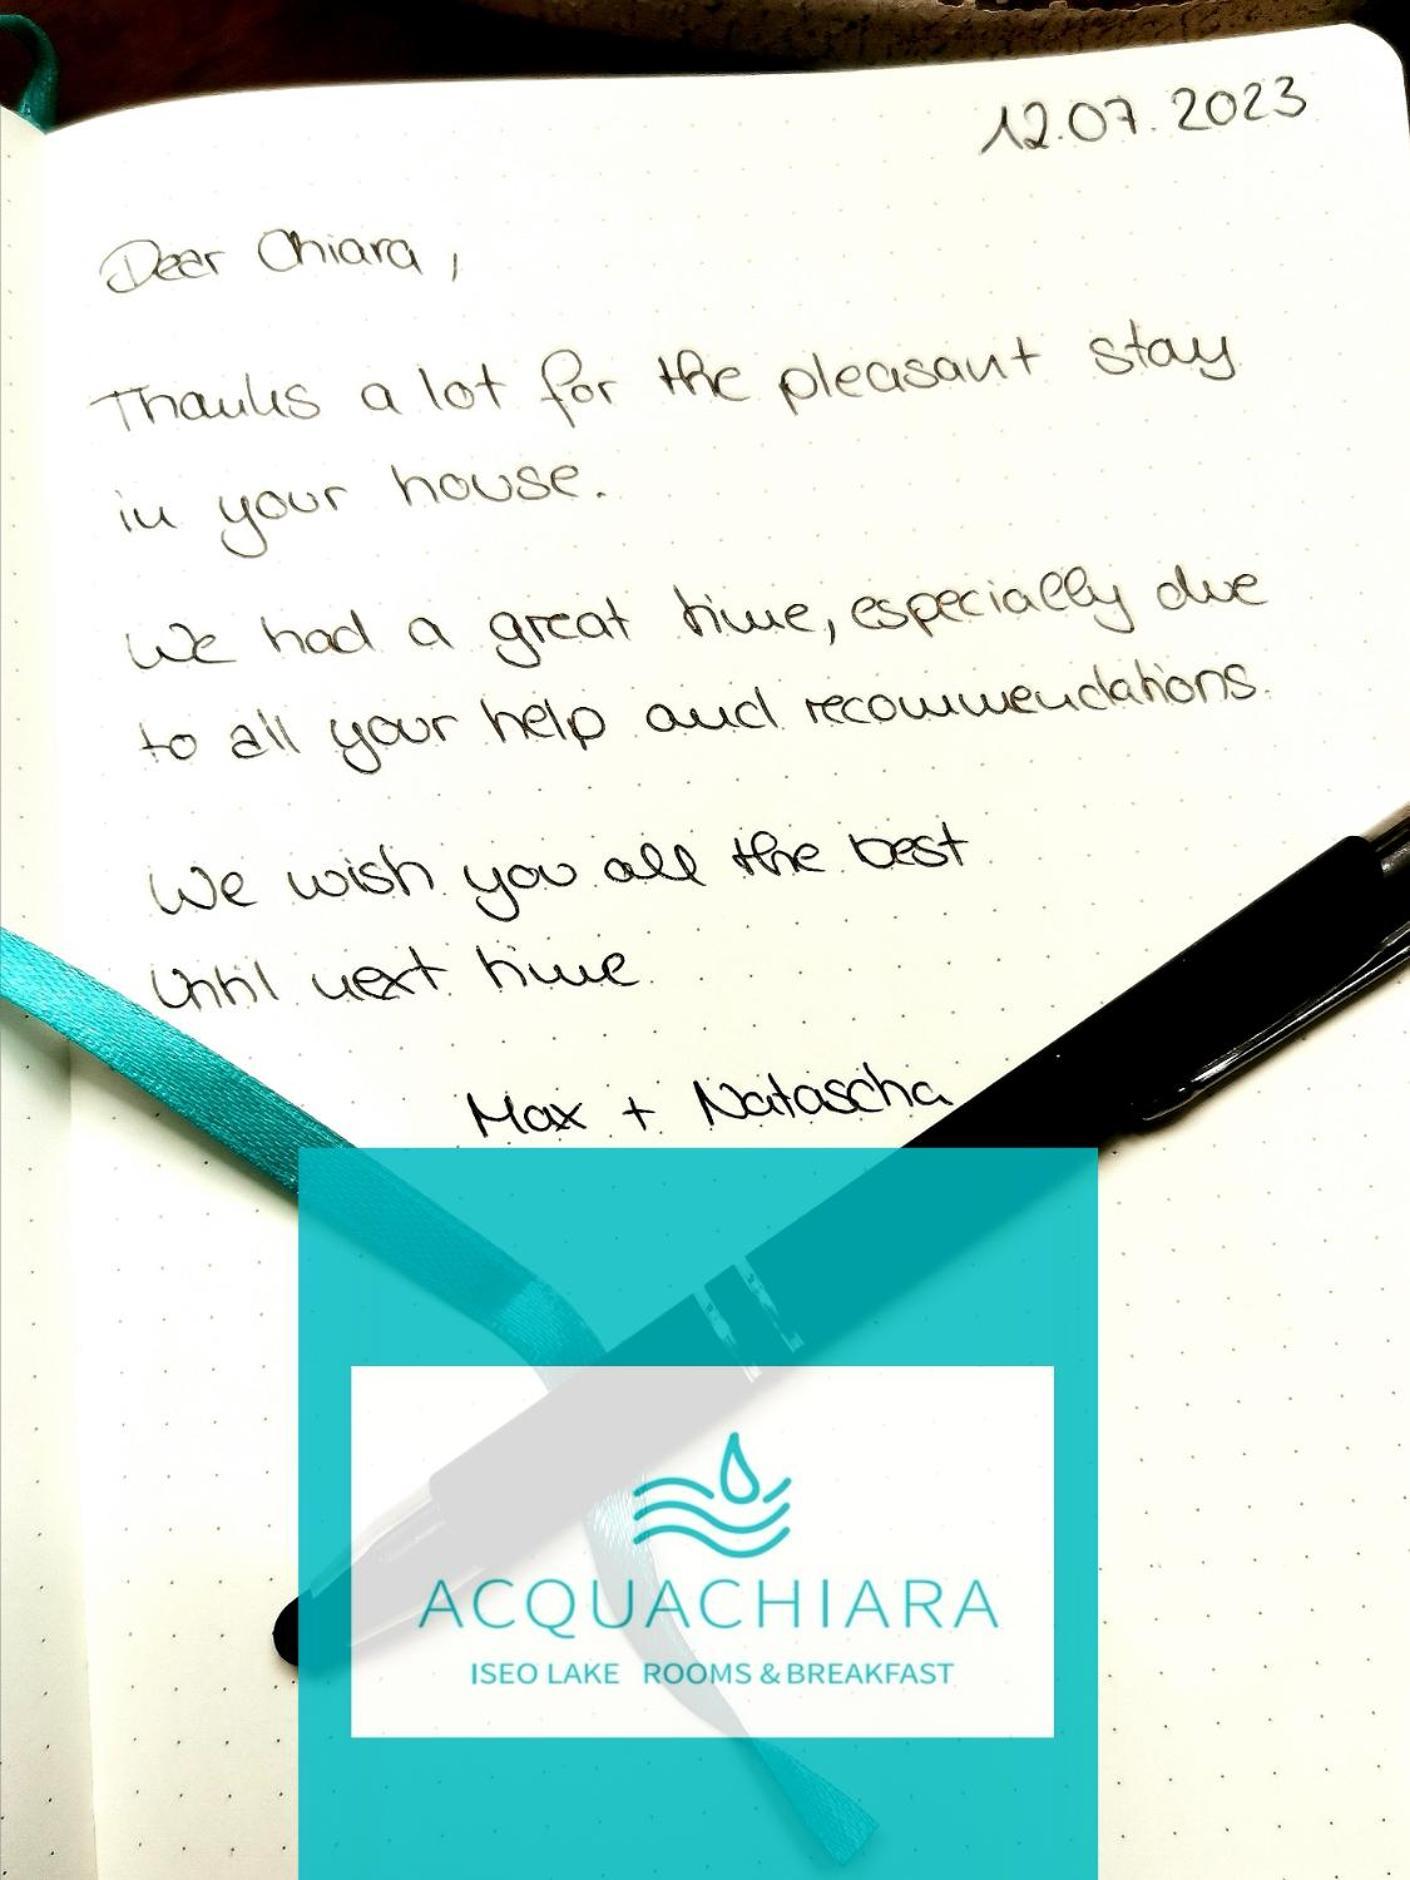 12.07.2023
Dear Chiara,
Thanks a lot for the pleasant stay
in your house.
We had a great time, especially due
to all your help and recommendations.
We wish you all the best
Until next time
Max + Natascha
ACQUACHIARA
ISEO LAKE ROOMS & BREAKFAST